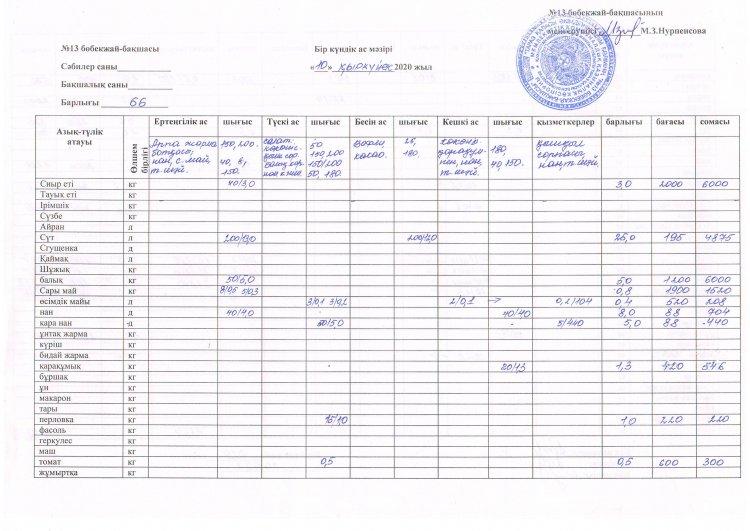 №13 бөбекжай-бақшасының
меңгерушісі М.З.Нурпеисова
№13 бөбекжай-бақшасы Бір күндік ас мәзірі
Сәбилер саны «10» қыркүйек 2020 жыл
Бақшалық саны
Барлығы 66
Азық-түлік атауы Өлшем бірлігі Ертеңгілік ас шығыс Түскі ас шығыс Бесін ас шығыс Кешкі ас шығыс қызметкерлер барлығы бағасы сомасы
Арпа жарма ботқасы, нан, с.май, 150,200. 40, 150. салат. 50 150,200 150/200 50, 180. какао. 180. нан, 180 40,150.
Сиыр еті кг 40/3,0 3,0 2000 6000
Тауық еті кг
Ірімшік кг
Сүзбе кг
Айран л
Сүт л 25,0 195 4875
Сгущенка д
Қаймақ л
Шұжық кг
балық кг 50/5,0 5,0 1200 6000
Сары май кг 0,8 1900 1520
өсімдік майы л 3/0,1 3/0,2 2/0,1 → 0,2/104 0,4 520 208
нан д 40/4,0 40/40 8,0 88 704
қара нан д 50/5,0 - 5/440 5,0 88 440
ұнтақ жарма кг
күріш кг
бидай жарма кг
қарақұмық кг 20/1,3 1,3 420 546
бұршақ кг
ұн кг
макарон кг
тары кг
перловка кг 15/1,0 1,0 220 220
фасоль кг
геркулес кг
маш кг
томат кг 0,5 0,5 600 300
жұмыртқа кг